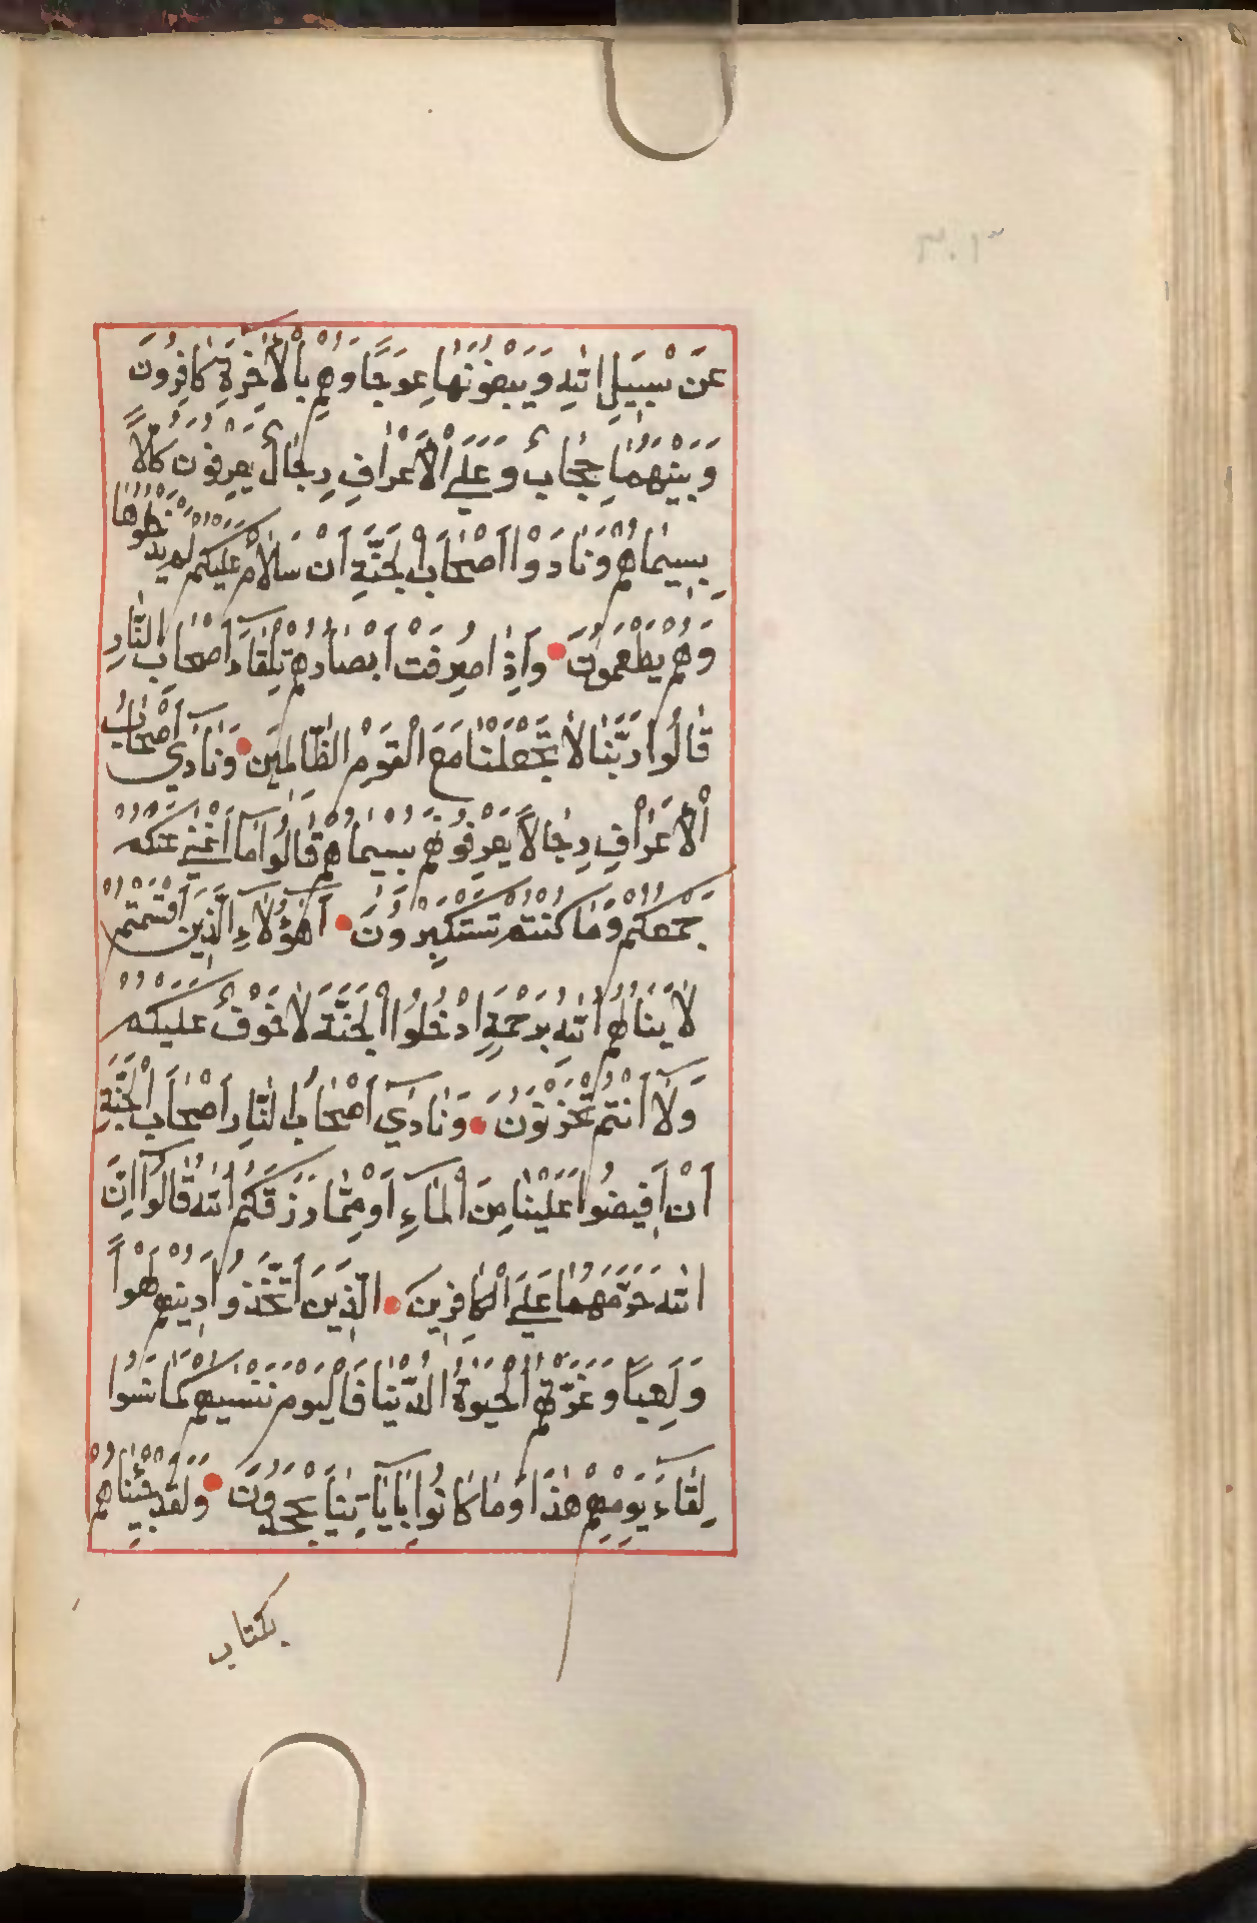 عَنْ سَبِيلِ اللهِ وَيَبْغُونَهَا عِوَجًا وَهُمْ بِالْآخِرَةِ كَافِرُونَ
وَبَيْنَهُمَا حِجَابٌ وَعَلَى الْأَعْرَافِ رِجَالٌ يَعْرِفُونَ كُلًّا
بِسِيمَاهُمْ وَنَادَوْا أَصْحَابَ الْجَنَّةِ أَنْ سَلَامٌ عَلَيْكُمْ لَمْ يَدْخُلُوهَا
وَهُمْ يَطْمَعُونَ وَإِذَا صُرِفَتْ أَبْصَارُهُمْ تِلْقَاءَ أَصْحَابِ النَّارِ
قَالُوا رَبَّنَا لَا تَجْعَلْنَا مَعَ الْقَوْمِ الظَّالِمِينَ وَنَادَى أَصْحَابُ
الْأَعْرَافِ رِجَالًا يَعْرِفُوهُمْ بِسِيمَاهُمْ قَالُوا مَا أَغْنَى عَنْكُمْ
جَمْعُكُمْ وَمَا كُنْتُمْ تَسْتَكْبِرُونَ أَهَؤُلَاءِ الَّذِينَ أَقْسَمْتُمْ
لَا يَنَالُهُمُ اللهُ بِرَحْمَةٍ ادْخُلُوا الْجَنَّةَ لَا خَوْفٌ عَلَيْكُمْ
وَلَا أَنْتُمْ تَحْزَنُونَ وَنَادَى أَصْحَابُ النَّارِ أَصْحَابَ الْجَنَّةِ
أَنْ أَفِيضُوا عَلَيْنَا مِنَ الْمَاءِ أَوْ مِمَّا رَزَقَكُمُ اللهُ قَالُوا إِنَّ
اللهَ حَرَّمَهُمَا عَلَى الْكَافِرِينَ الَّذِينَ اتَّخَذُوا دِينَهُمْ لَهْوًا
وَلَعِبًا وَغَرَّتْهُمُ الْحَيَوةُ الدُّنْيَا فَالْيَوْمَ نَنْسَيهُمْ كَمَا نَسُوا
لِقَاءَ يَوْمِهِمْ هَذَا وَمَا كَانُوا بِآيَاتِنَا يَجْحَدُونَ وَلَقَدْ جِئْنَاهُمْ
بكتاب